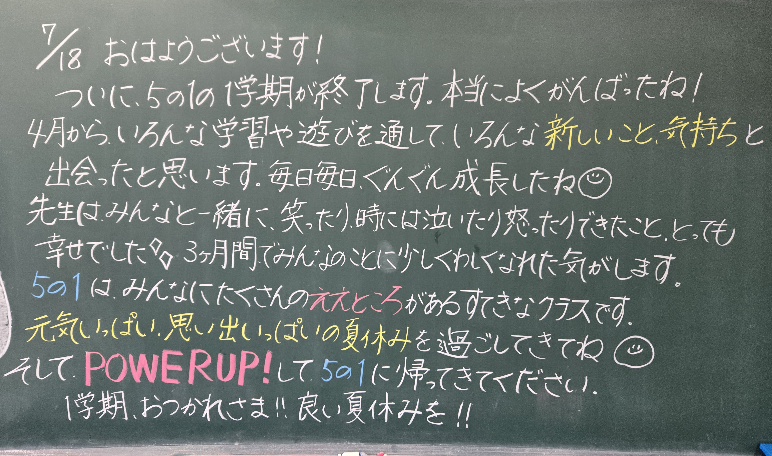 7/18 おはようございます!
ついに、5の1の1学期が終了します。本当によくがんばったね!
4月から、いろんな学習や遊びを通して、いろんな新しいこと、気持ちと
出会ったと思います。毎日毎日、ぐんぐん成長したね☺
先生は、みんなと一緒に、笑ったり、時には泣いたり怒ったりできたこと、とっても
幸せでした◇◇ 3ヶ月間でみんなのことに少しくわしくなれた気がします。
5の1は、みんなにたくさんのええところがあるすてきなクラスです。
元気いっぱい、思い出いっぱいの夏休みを過ごしてきてね☺
そして、POWERUP!して、5の1に帰ってきてください。
1学期、おつかれさま!! 良い夏休みを!!